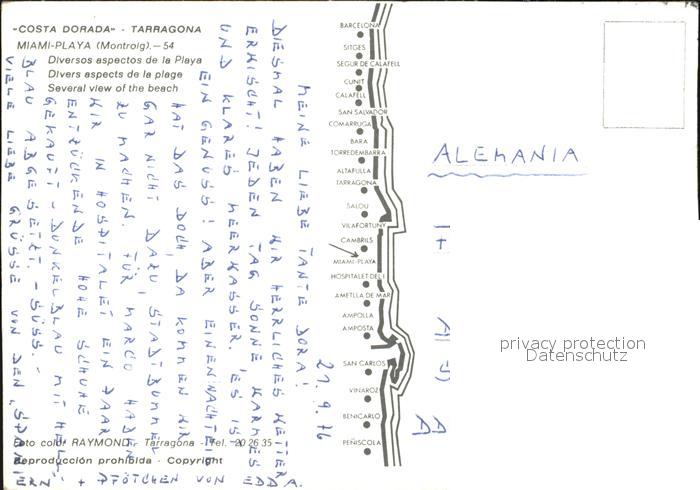 "COSTA DORADA" - TARRAGONA
MIAMI-PLAYA (Montroig).-54
Diversos aspectos de la Playa
Divers aspects de la plage
Several view of the beach
21.9.76
MEINE LIEBE TANTE DORA!
DIESMAL HABEN WIR HERRLICHES WETTER
ERWISCHT! JEDEN TAG SONNE, WARMES
UND KLARES MEERWASSER. ES IS
EIN GENUSS! ABER EINEN NACHTEIL
HAT DAS DOCH, DA KOMMEN WIR
GAR NICHT DAZU, STADTBUMMEL
ZU MACHEN. FÜR MARCO HABEN
WIR IN HOSPITALET EIN PAAR
ENTZÜCKENDE HOHE SCHUHE
GEKAUFT - DUNKELBLAU MIT HELL-
BLAU ABGESETZT. - SÜSS. -
VIELE LIEBE GRÜSSE VON DEN "SPANI
ERN" + PFÖTCHEN VON EDDA.
Foto color RAYMOND - Tarragona - Tel. 20 26 35
Reproducción prohibida - Copyright
BARCELONA
SITGES
SEGUR DE CALAFELL
CUNIT
CALAFELL
SAN SALVADOR
COMARRUGA
BARA
TORREDEMBARRA
ALTAFULLA
TARRAGONA
SALOU
VILAFORTUNY
CAMBRILS
MIAMI-PLAYA
HOSPITALET DEL I.
AMETLLA DE MAR
AMPOLLA
AMPOSTA
SAN CARLOS
VINAROZ
BENICARLO
PEÑISCOLA
ALEMANIA
DD
privacy protection
Datenschutz